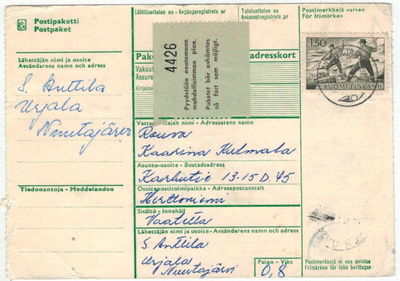 Postipaketti
Postpaket
Lähettäjän nimi ja osoite
Avsändarens namn och adress
S. Anttila
Urjala
Nuutajärvi
Tiedonantoja - Meddelanden
Lähettäjätoimipaikka - Avsändningskontor nr
Tuloluettelon n:o
Ankomstregistrets nr
Postimerkkejä varten
För frimärken
4426
Pyydetään noutamaan
mahdollisimman pian.
Paketet bör avhämtas
så fort som möjligt.
adresskort
1,50
SUOMI FINLAND
Vastaanottajan nimi - Adressatens namn
Rouva
Kaarina Kulmala
Asunto-osoite - Bostadsadress
Karhutie 13-15 D 45
Osoitepostitoimipaikka - Adresspostanstalt
Herttoniemi
Sisältö - Innehåll
Vaatetta
Lähettäjän nimi ja osoite - Avsändarens namn och adress
S Anttila
Urjala
Nuutajärvi
Paino - Vikt
0,8
Postimerkkejä ei saa poistaa
Frimärken får icke borttagas